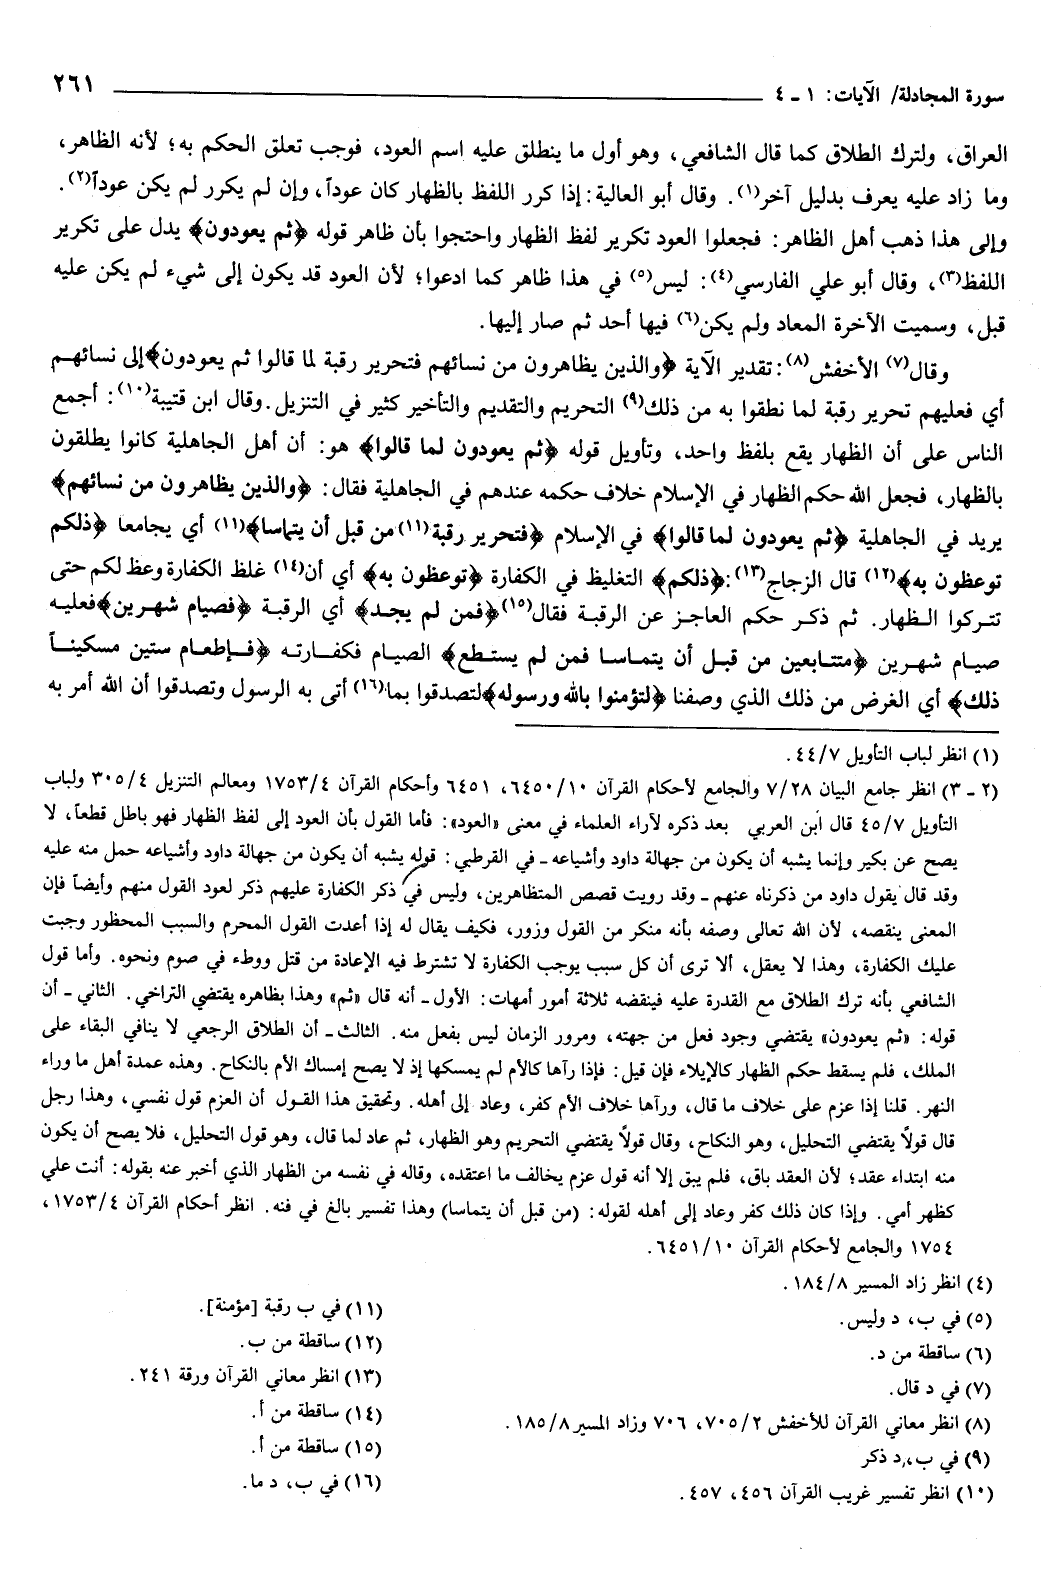 سورة المجادلة/ الآيات: ١ ـ ٤ ٢٦١
العراق، ولترك الطلاق كما قال الشافعي، وهو أول ما ينطلق عليه اسم العود، فوجب تعلق الحكم به؛ لأنه الظاهر،
وما زاد عليه يعرف بدليل آخر(١). وقال أبو العالية: إذا كرر اللفظ بالظهار كان عوداً، وإن لم يكرر لم يكن عوداً(٢).
وإلى هذا ذهب أهل الظاهر: فجعلوا العود تكرير لفظ الظهار واحتجوا بأن ظاهر قوله ﴿ثم يعودون﴾ يدل على تكرير
اللفظ(٣)، وقال أبو علي الفارسي(٤): ليس(٥) في هذا ظاهر كما ادعوا؛ لأن العود قد يكون إلى شيء لم يكن عليه
قبل، وسميت الآخرة المعاد ولم يكن(٦) فيها أحد ثم صار إليها.
وقال(٧) الأخفش(٨): تقدير الآية ﴿والذين يظاهرون من نسائهم فتحرير رقبة لما قالوا ثم يعودون﴾إلى نسائهم
أي فعليهم تحرير رقبة لما نطقوا به من ذلك(٩) التحريم والتقديم والتأخير كثير في التنزيل. وقال ابن قتيبة(١٠): أجمع
الناس على أن الظهار يقع بلفظ واحد، وتأويل قوله ﴿ثم يعودون لما قالوا﴾ هو: أن أهل الجاهلية كانوا يطلقون
بالظهار، فجعل الله حكم الظهار في الإسلام خلاف حكمه عندهم في الجاهلية فقال: ﴿والذين يظاهرون من نسائهم﴾
يريد في الجاهلية ﴿ثم يعودون لما قالوا﴾ في الإسلام ﴿فتحرير رقبة(١١) من قبل أن يتماسا﴾(١١) أي يجامعا ﴿ذلكم
توعظون به﴾(١٢) قال الزجاج(١٣): ﴿ذلكم﴾ التغليظ في الكفارة ﴿توعظون به﴾ أي أن(١٤) غلظ الكفارة وعظ لكم حتى
تتركوا الظهار. ثم ذكر حكم العاجز عن الرقبة فقال(١٥) ﴿فمن لم يجد﴾ أي الرقبة ﴿فصيام شهرين﴾فعليه
صيام شهرين ﴿متتابعين من قبل أن يتماسا فمن لم يستطع﴾ الصيام فكفارته ﴿فإطعام ستين مسكيناً
ذلك﴾ أي الغرض من ذلك الذي وصفنا ﴿لتؤمنوا بالله ورسوله﴾لتصدقوا بما(١٦) أتى به الرسول وتصدقوا أن الله أمر به
(١) انظر لباب التأويل ٤٤/٧.
(٢ ـ ٣) انظر جامع البيان ٧/٢٨ والجامع لأحكام القرآن ٦٤٥٠/١٠، ٦٤٥١ وأحكام القرآن ١٧٥٣/٤ ومعالم التنزيل ٣٠٥/٤ ولباب
التأويل ٤٥/٧ قال ابن العربي بعد ذكره لآراء العلماء في معنى «العود»: فأما القول بأن العود إلى لفظ الظهار فهو باطل قطعاً، لا
يصح عن بكير وإنما يشبه أن يكون من جهالة داود وأشياعه ـ في القرطبي: قوله يشبه أن يكون من جهالة داود وأشياعه حمل منه عليه
وقد قال يقول داود من ذكرناه عنهم ـ وقد رويت قصص المتظاهرين، وليس في ذكر الكفارة عليهم ذكر لعود القول منهم وأيضاً فإن
المعنى ينقصه، لأن الله تعالى وصفه بأنه منكر من القول وزور، فكيف يقال له إذا أعدت القول المحرم والسبب المحظور وجبت
عليك الكفارة، وهذا لا يعقل، ألا ترى أن كل سبب يوجب الكفارة لا تشترط فيه الإعادة من قتل ووطء في صوم ونحوه. وأما قول
الشافعي بأنه ترك الطلاق مع القدرة عليه فينقضه ثلاثة أمور أمهات: الأول ـ أنه قال «ثم» وهذا بظاهره يقتضي التراخي. الثاني ـ أن
قوله: «ثم يعودون» يقتضي وجود فعل من جهته، ومرور الزمان ليس بفعل منه. الثالث ـ أن الطلاق الرجعي لا ينافي البقاء على
الملك، فلم يسقط حكم الظهار كالإيلاء فإن قيل: فإذا رآها كالأم لم يمسكها إذ لا يصح إمساك الأم بالنكاح. وهذه عمدة أهل ما وراء
النهر. قلنا إذا عزم على خلاف ما قال، ورآها خلاف الأم كفر، وعاد إلى أهله. وتحقيق هذا القول أن العزم قول نفسي، وهذا رجل
قال قولاً يقتضي التحليل، وهو النكاح، وقال قولاً يقتضي التحريم وهو الظهار، ثم عاد لما قال، وهو قول التحليل، فلا يصح أن يكون
منه ابتداء عقد؛ لأن العقد باق، فلم يبق إلا أنه قول عزم يخالف ما اعتقده، وقاله في نفسه من الظهار الذي أخبر عنه بقوله: أنت علي
كظهر أمي. وإذا كان ذلك كفر وعاد إلى أهله لقوله: (من قبل أن يتماسا) وهذا تفسير بالغ في فنه. انظر أحكام القرآن ١٧٥٣/٤،
١٧٥٤ والجامع لأحكام القرآن ٦٤٥١/١٠.
(٤) انظر زاد المسير ١٨٤/٨.
(٥) في ب، د وليس.
(٦) ساقطة من د.
(٧) في د قال.
(٨) انظر معاني القرآن للأخفش ٧٠٥/٢، ٧٠٦ وزاد المسير ١٨٥/٨.
(٩) في ب، د ذكر
(١٠) انظر تفسير غريب القرآن ٤٥٦، ٤٥٧.
(١١) في ب رقبة [مؤمنة].
(١٢) ساقطة من ب.
(١٣) انظر معاني القرآن ورقة ٢٤١.
(١٤) ساقطة من أ.
(١٥) ساقطة من أ.
(١٦) في ب، د ما.